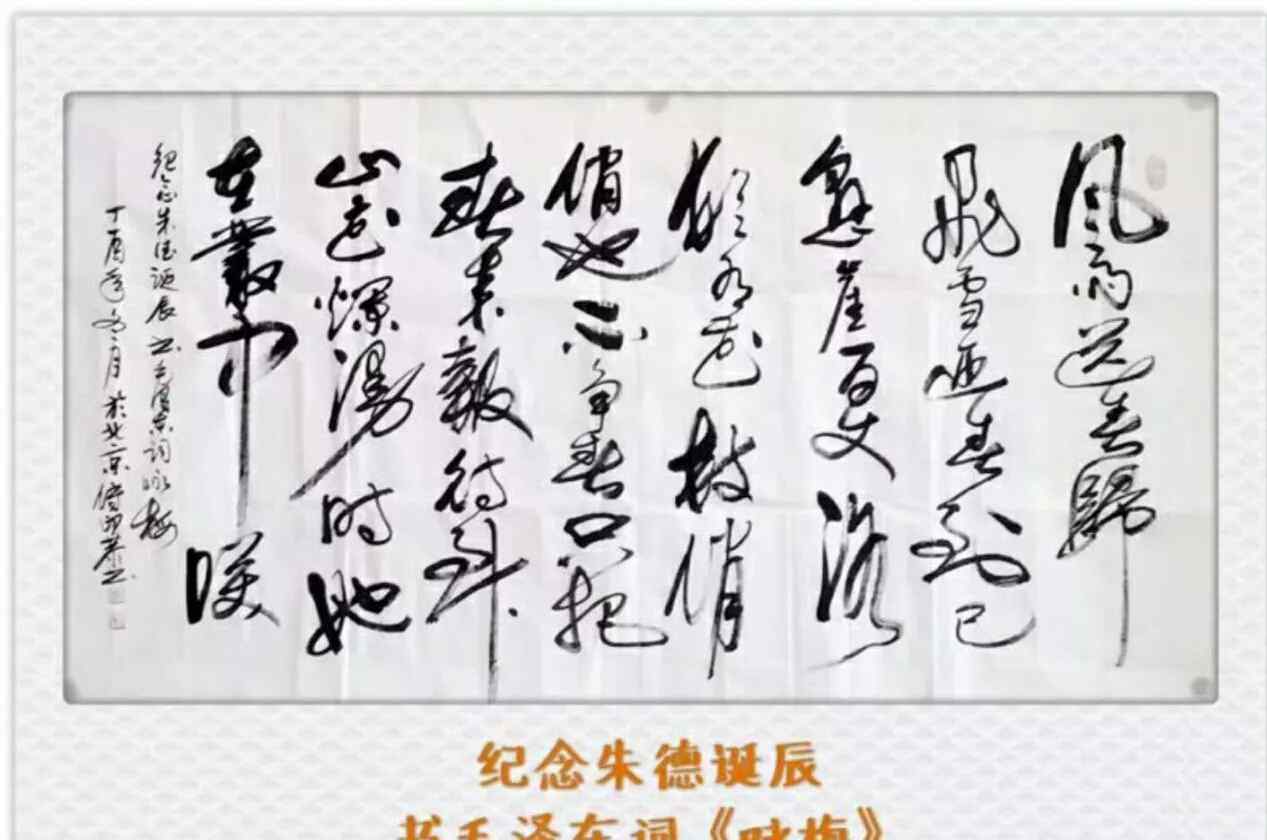 风雨送春歸
飛雪迎春到已
懸崖百丈冰
猶有花枝俏
俏也不争春只把
春来報待到
山花爛漫时她
在叢中咲
紀念朱德诞辰书毛泽东词咏梅
丁酉年冬月於北京
纪念朱德诞辰
书毛泽东词《咏梅》